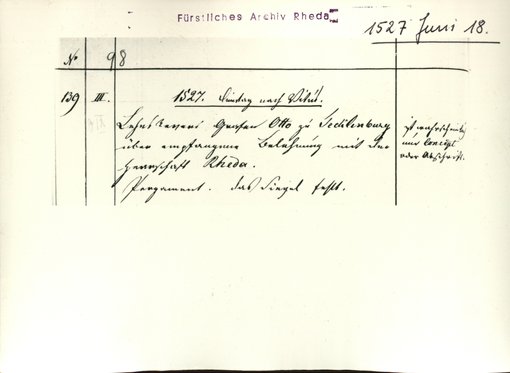 Fürstliches Archiv Rheda
1527 Juni 18.
No 98
139 III. 1527. Dinstag nach Viti.
Lehnsrevers Grafen Otto zu Tecklenburg
über empfangene Belehnung mit der
Herrschaft Rheda.
Pergament. das Siegel fehlt.
ist wahrscheinlich
nur Concept
oder Abschrift.